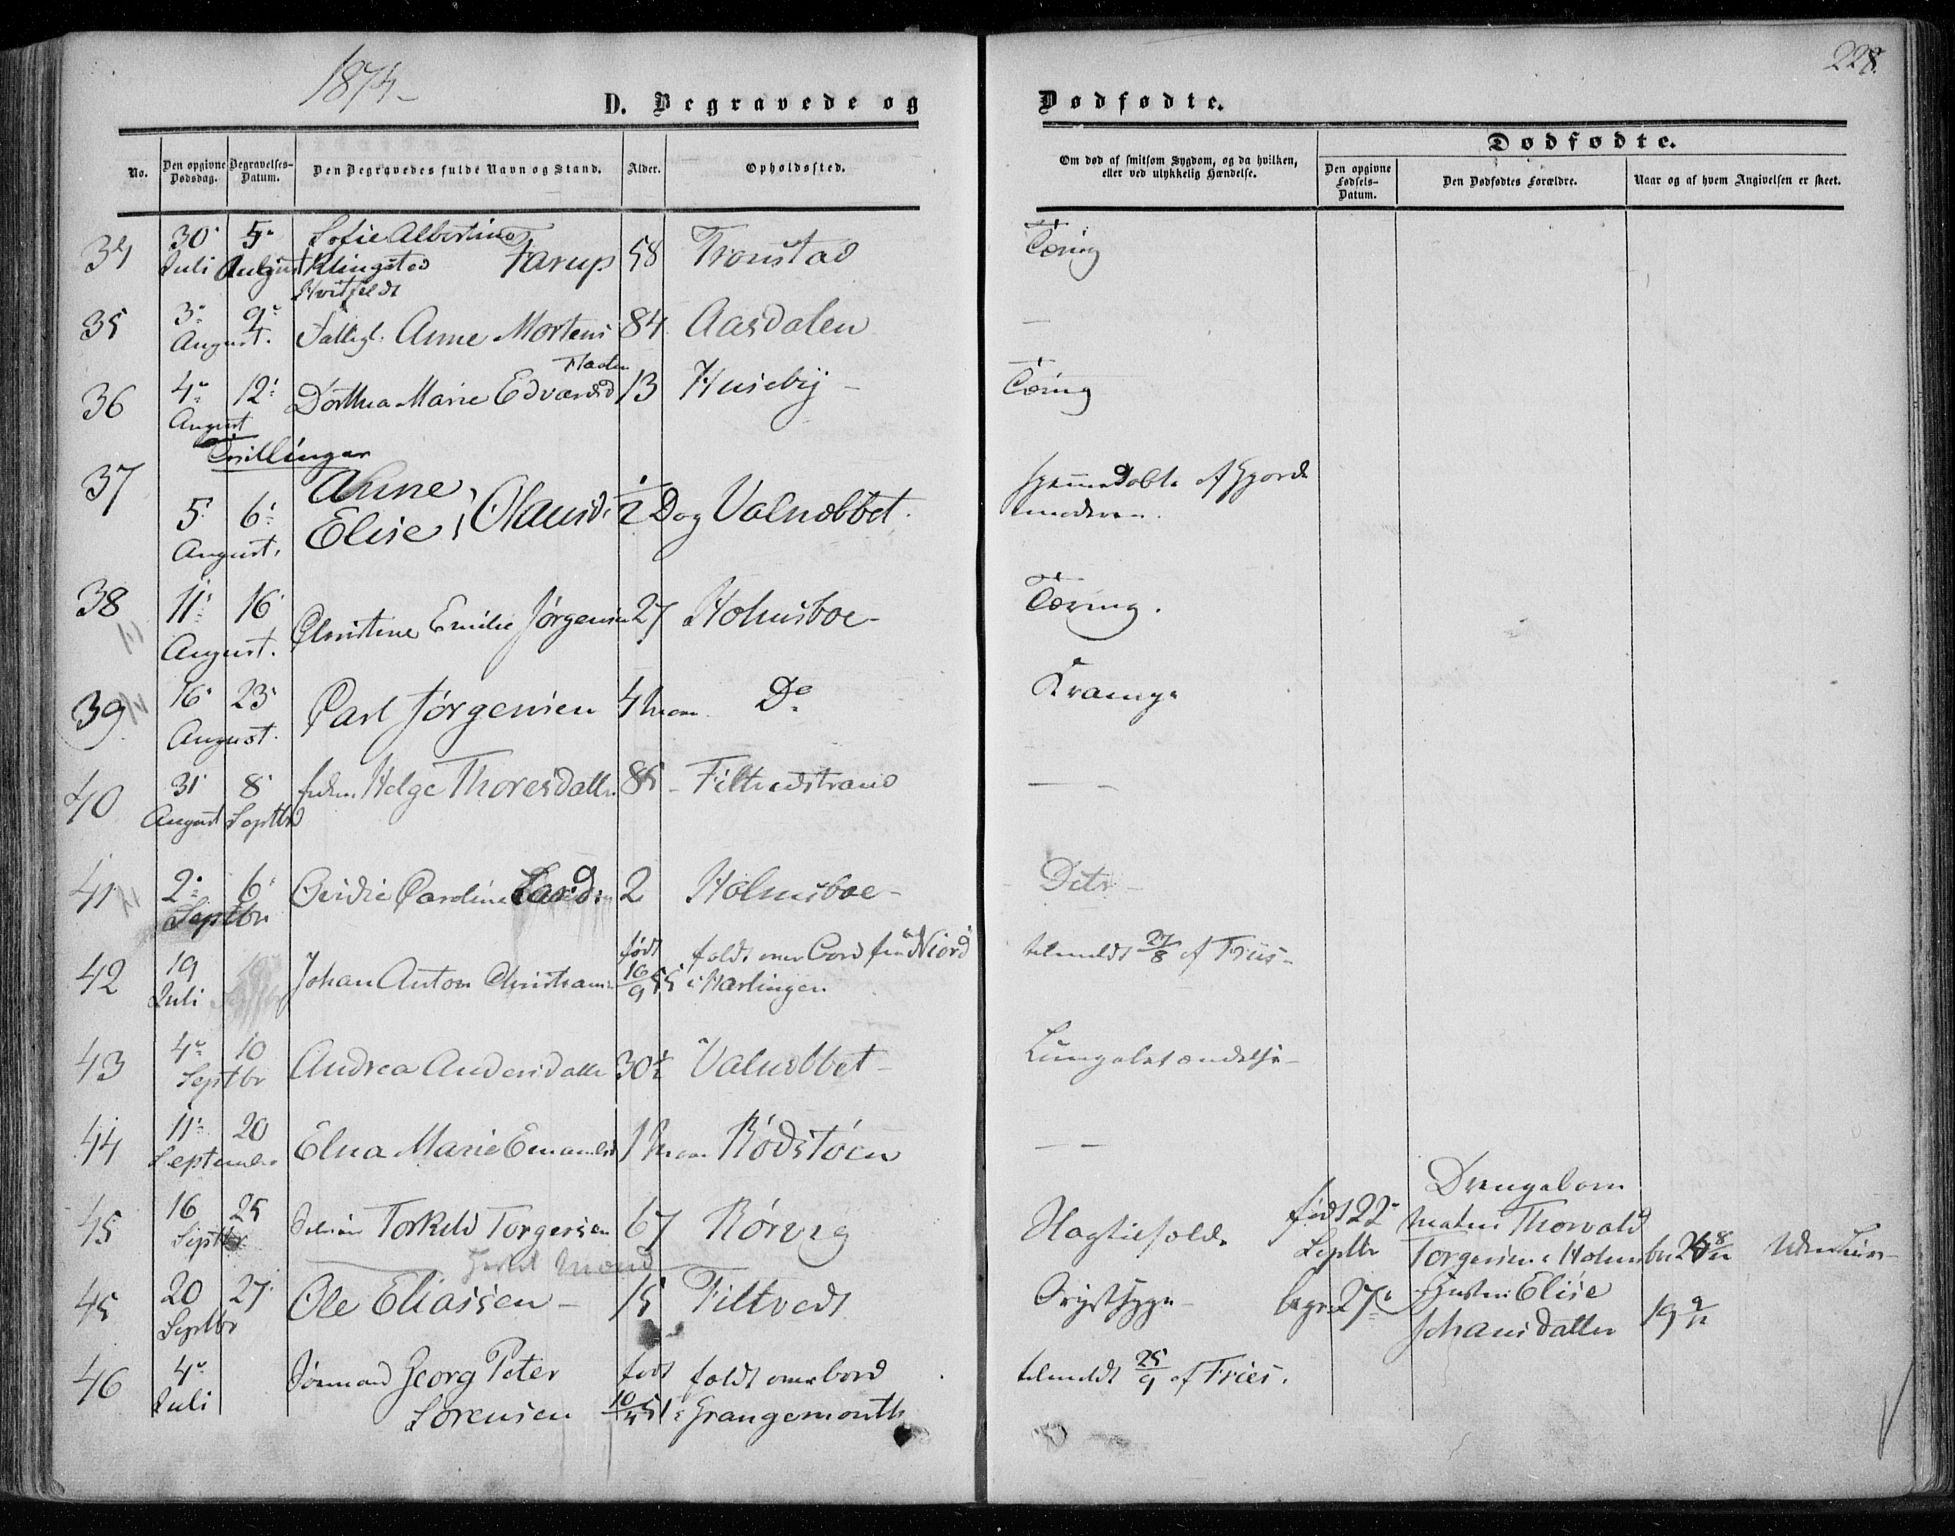 1874
D. Begravede og
Dødfødte.
228.
No.
Den opgivne Dødsdag.
Begravelses-Datum.
Den Begravedes fulde Navn og Stand.
Alder.
Opholdssted.
Om død af smitsom Sygdom, og da hvilken, eller ved ulykkelig Hændelse.
Dødfødte.
Den opgivne Fødsels-Datum.
Den Dødfødtes Forældre.
Naar og af hvem Angivelsen er skeet.
34 30 Juli 5 August Sofie Albertine Klingsted Hvitfeldt Farup 58 Tronstad Tæring
35 3 9 August. Fattigl. Anne Mortens 84 Aasdalen —
36 4 12 August Dorthea Marie Edvardsd 13 Husebÿ — Tæring
Tvillinger
37 5 6 August. Anne, Elise, Olausd. 1/2 Dag Valnøbbet. hjemmedøbte af Gjorde moderen.
38 11 16 August. Christine Emilie Jørgensen 27 Holmsboe — Tæring.
39 16 23 August. Carl Jørgensen 4 D° Krampe
40 31 August 8 Septbr Helge Thoresdatter 85 Filtvedstrand — —
41 2 6 Septbr Caroline 2 Holmsboe —
42 19 Juli Johan Anton Christians født 16/9 55 faldt over Bord fra Niord i Harlingen tilmeldt 27/8 af Friis —
43 4 10 Septbr Andrea Andersdatter 30 1/2 Valnøbbet — Lungebetændelse —
44 11 20 September Elna Marie Emanuelsd 1 Rødstøen — —
45 16 25 Septbr Torkild Torgersen 67 Rørvig
født 22 Septbr Drengebarn Thorvald Torgersen Holmsbu 8/11
45 20 27 Septbr Ole Eliassen — 15 Filtvedt Brystsyge — begr 27 Elise Johansdatter 19 9/12
46 4 Juli Sømand Georg Peter Sørensen født 10/4 51 faldt over bord i Grangemouth tilmeldt 25/9 af Friis.